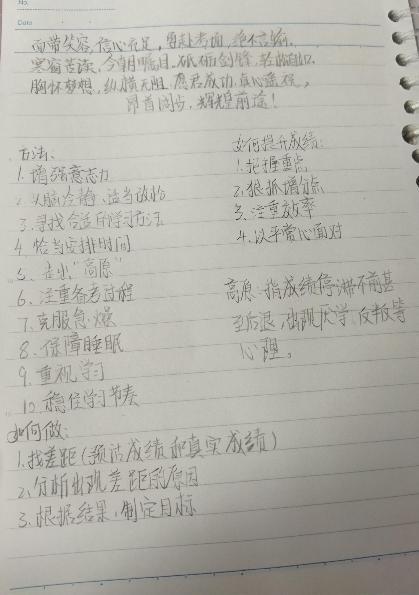 No.
Date
面带笑容,信心充足,勇赴考面,绝不言输.
寒窗苦读,今朝瞩目,砥砺剑锋,
胸怀梦想,纵横无阻,愿君成功,真心莲祝,
昂首阔步,辉煌前途!
方法:
1.增强意志力
2.头脑冷静,适当放松
3.寻找合适所学习方法
4.恰当安排时间
5.走出“高原”
6.注重备考过程
7.克服急燥
8.保障睡眠
9.重视学习
10.稳住学习节奏
如何提升成绩:
1.把握重点
2.狠抓增分点
3.注重效率
4.以平常心面对
高原:指成绩停滞不前甚
至后退,出现厌学,反叛等
心理。
如何做:
1.找差距(预估成绩和真实成绩)
2.分析出现差距的原因
3.根据结果,制定目标